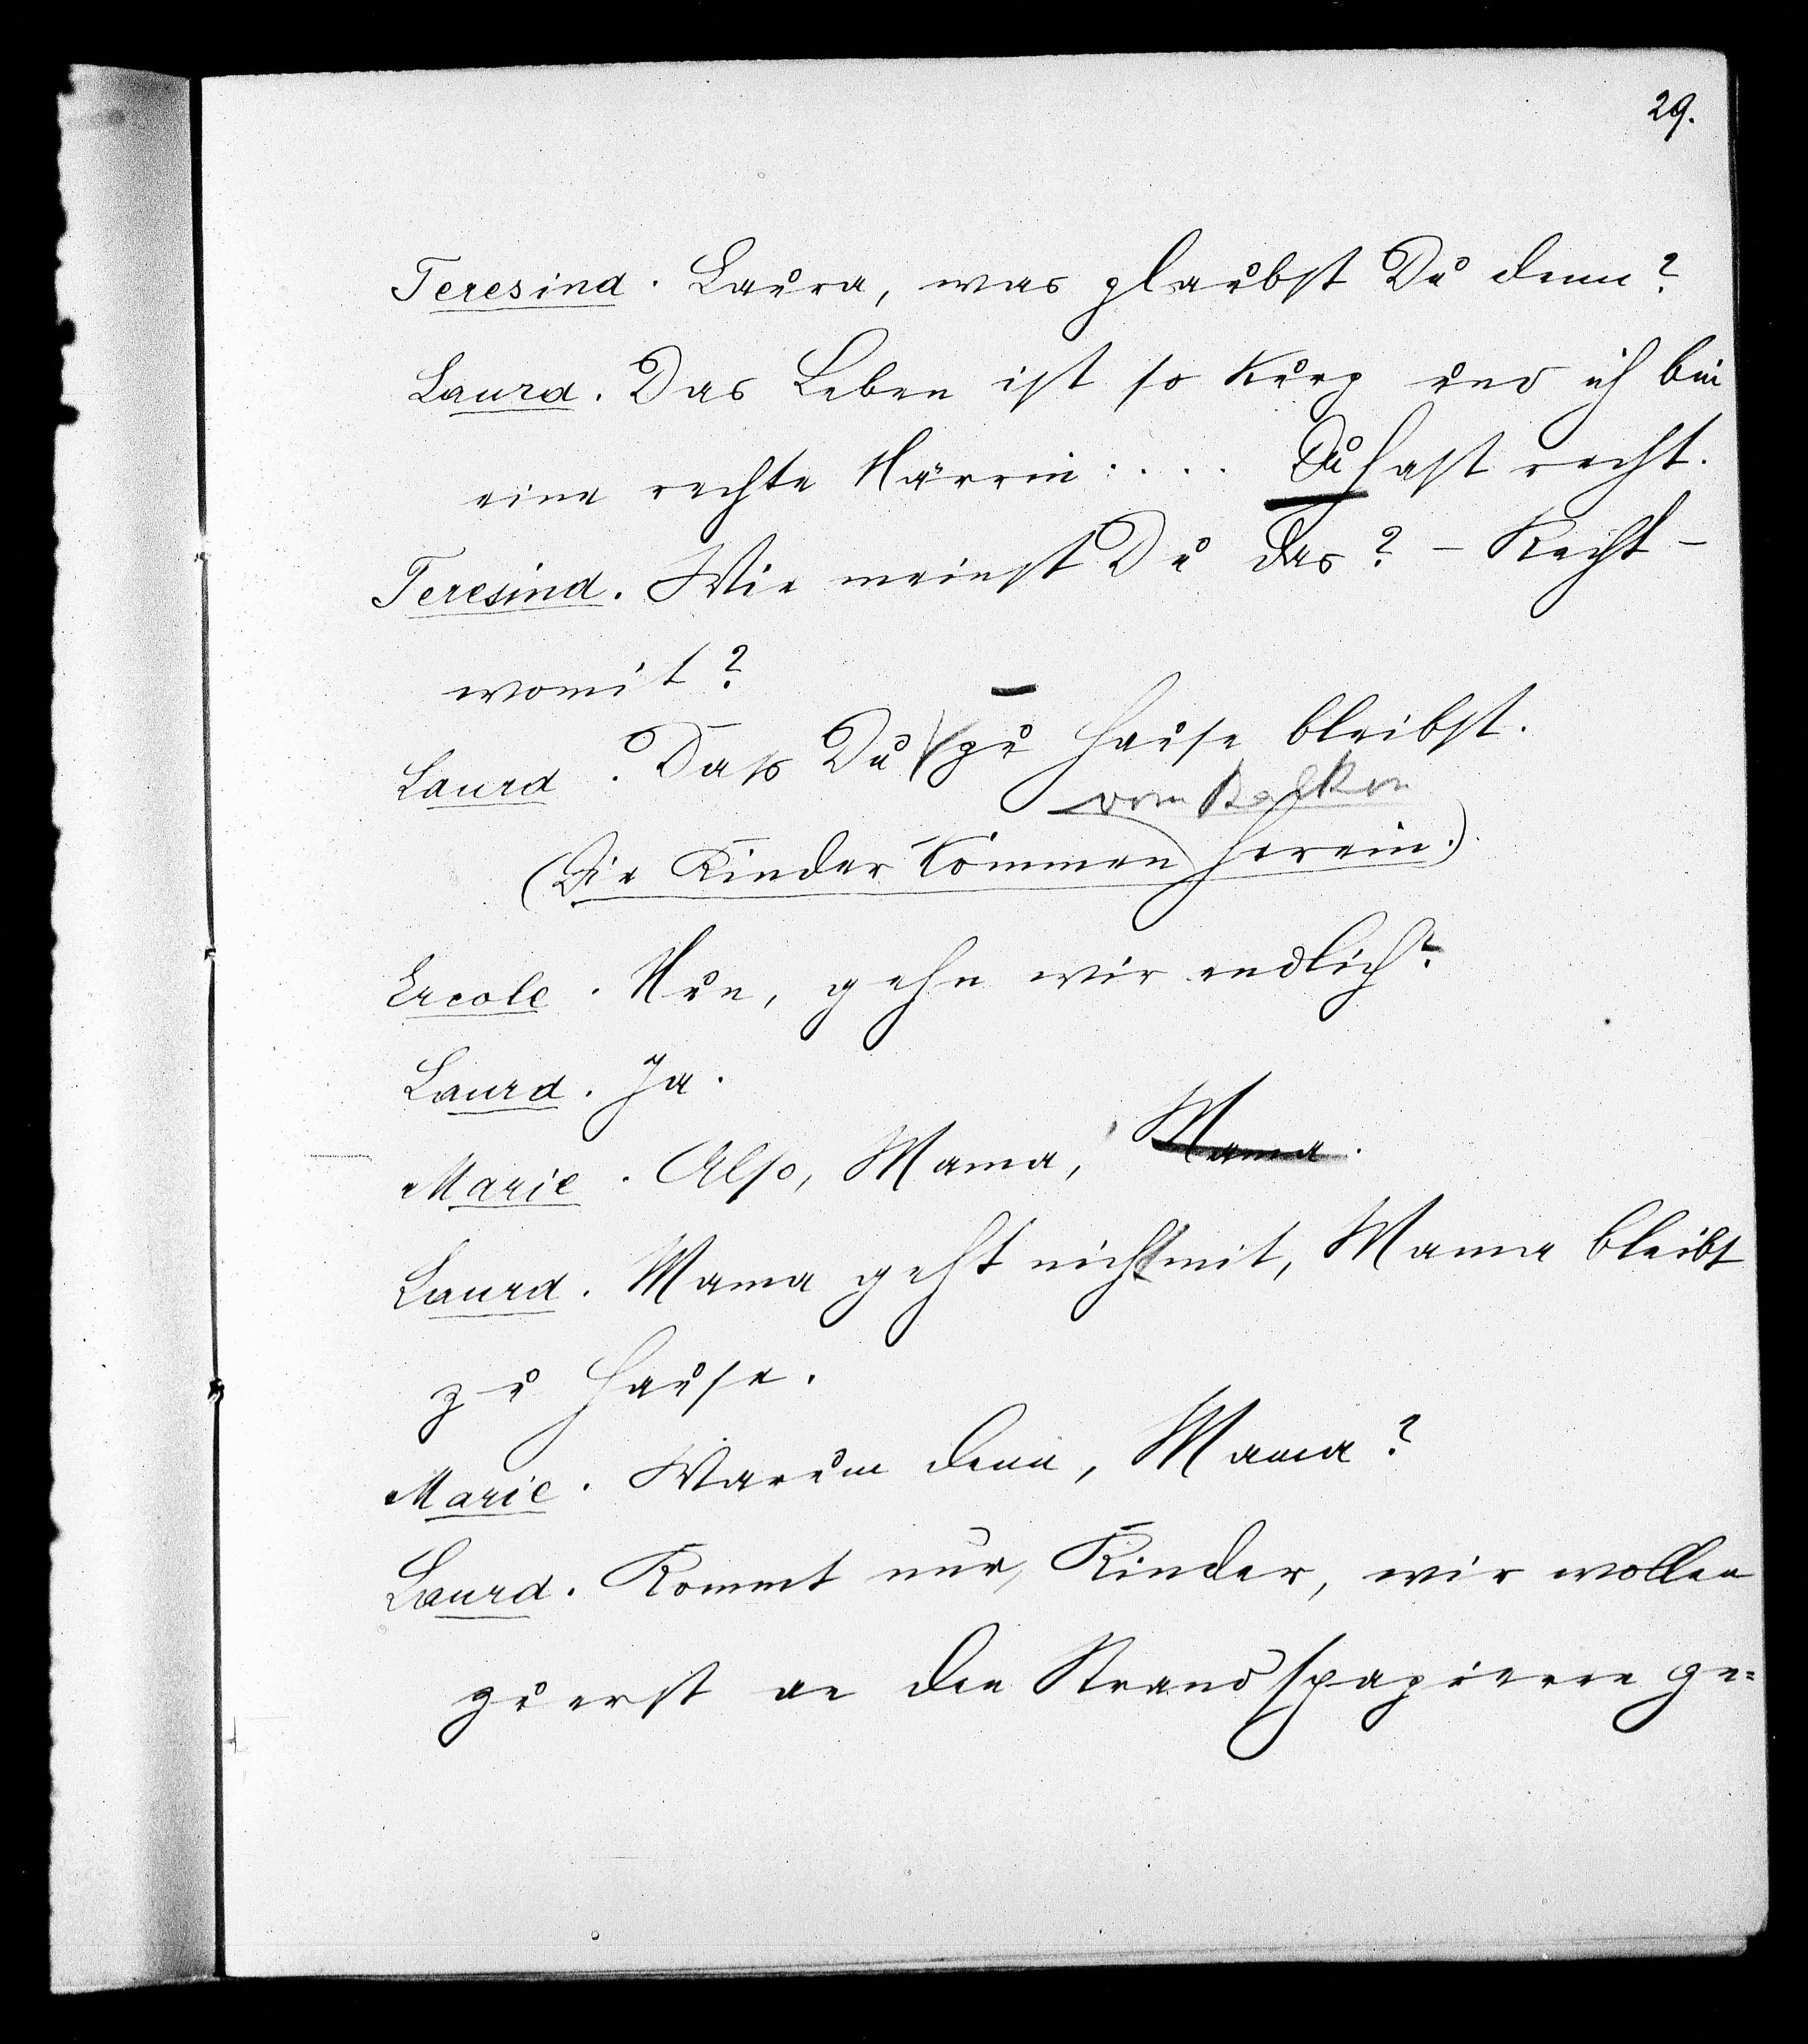 29.
Teresina. Laura, was glaubst Du denn?
Laura. Das Leben ist so kurz und ich bin
eine rechte Närrin . . . . Du hast recht.
Teresina. Wie meinst Du das? – Recht –
womit?
Laura. Daß Du zu Hause bleibst.
vom Balkon
(Die Kinder kommen herein.)
Ercole. Nun, gehn wir endlich?
Laura. Ja.
Marie. Also, Mama, Mama.
Laura. Mama geht nicht mit, Mama bleibt
zu Hause.
Marie. Warum denn, Mama?
Laura. Kommt nur, Kinder, wir wollen
zuerst an den Strand spazieren ge=